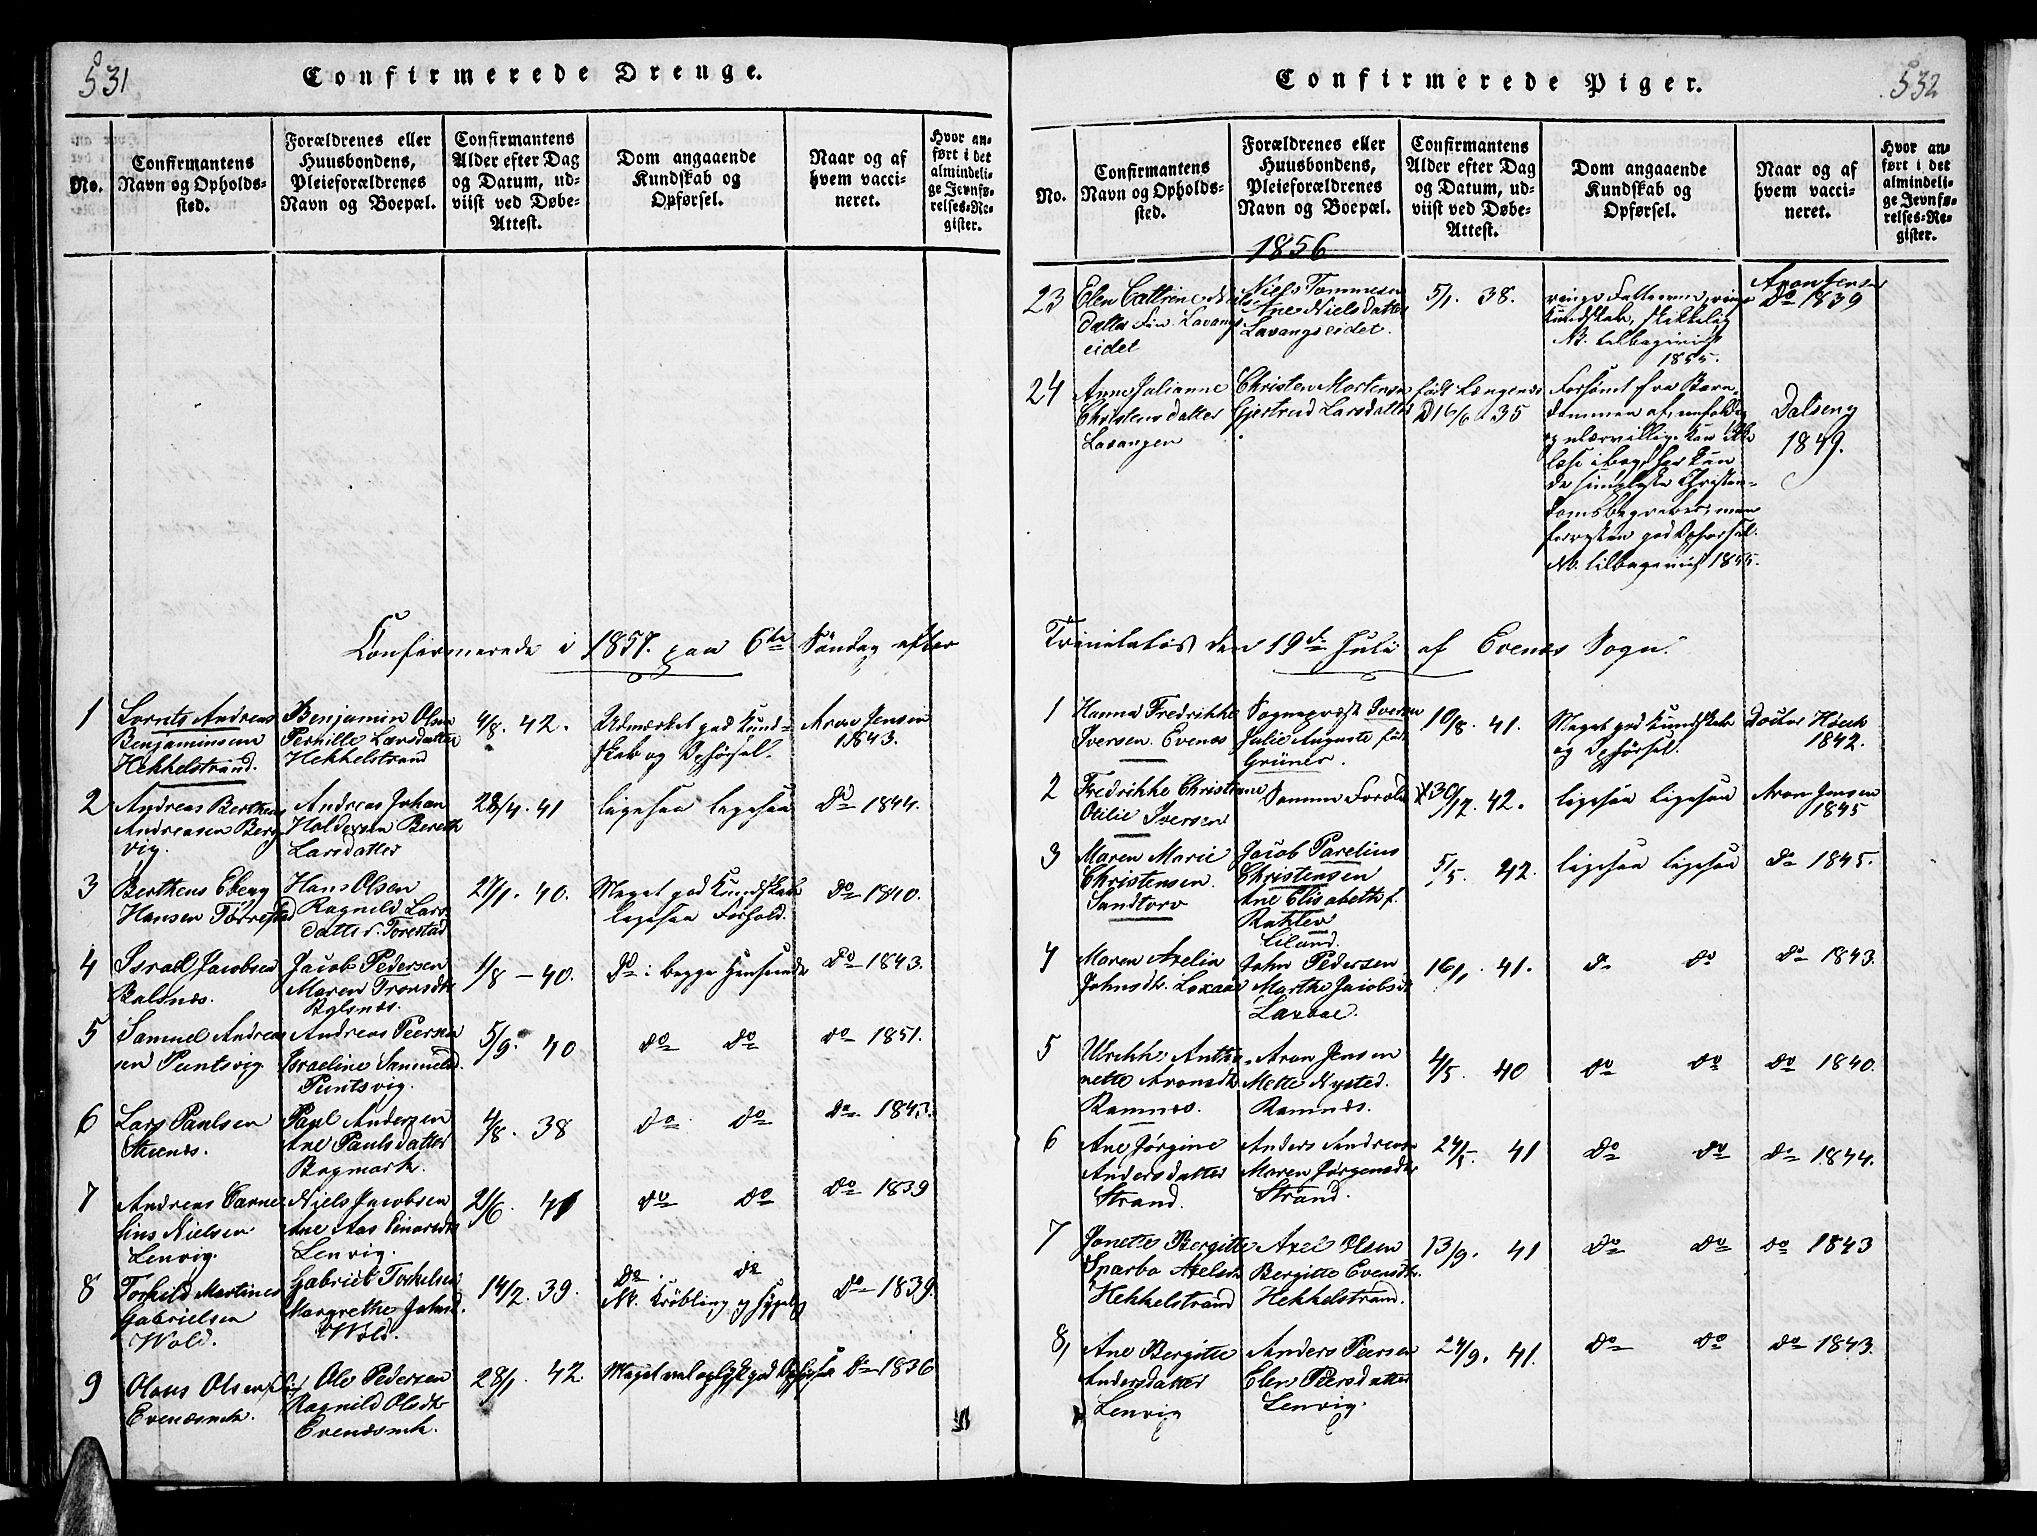 531
Confirmerede Drenge.
No.
Confirmantens
Navn og Opholds-
sted.
Forældrenes eller
Huusbondens,
Pleieforældrenes
Navn og Boepæl.
Confirmantens
Alder efter Dag
og Datum, ud-
viist ved Døbe-
Attest.
Dom angaaende
Kundskab og
Opførsel.
Naar og af
hvem vacci-
neret.
Hvor an-
ført i det
almindeli-
ge Jevnfø-
relses-Re-
gister.
Confirmerede i 1857. paa 6te Søndag efter
1
Lornts Andreas
Benjaminsen
Hekkelstrand.
Benjamin Olsen
Pernille Larsdatter
Hekkelstrand
4/8. 42.
Udmærket god Kund-
skab og Opførsel.
Aron Jensen
1843.
2
Andreas Bertheus
Andreasen Berg
vig.
Andreas Johan
Holdersen Bereth
Larsdatter
28/4. 41
ligesaa ligesaa
Do 1844.
3
Bertheus Eberg
Hansen Tørrestad
Hans Olsen
Ragnild Lars
datter. Torestad
27/1. 40.
Meget god Kundskab
ligesaa Forhold.
Do 1840.
4
Israel Jacobsen
Balsnes.
Jacob Pedersen
Maren Tronsdtr
Balsnes.
1/8 - 40.
Do i begge Henseender
Do 1843.
5
Samuel Andrea
sen Puntsvig
Andreas Peersen
Israeline Samuelsd.
Puntsvig.
5/9. 40
do do
do 1851.
6
Lars Paulsen
Steenes.
Paul Andersen
Ane Paulsdatter
Bogmark.
4/8. 38
do do
do 1843.
7
Andreas Carne
lius Nielsen
Lenvig.
Niels Jacobsen
Ane Aas Einarsdtr
Lenvig.
2/6. 41
do do
do 1839
8
Torkild Martines
Gabrielsen
Wold.
Gabriel Torkelsen
Margrethe Johnsd.
Wold.
14/2. 39.
Do. do
NB. Krøbling og sygelig
do 1839.
9
Olaus Olsen
Evenesmk.
Ole Pedersen
Ragnild Olsdtr
Evenesmk.
28/1. 42
Meget vel oplyst god Opførsel
Do 1836
532
Confirmerede Piger.
No.
Confirmantens
Navn og Opholds-
sted.
Forældrenes eller
Huusbondens,
Pleieforældrenes
Navn og Boepæl.
1856
Confirmantens
Alder efter Dag
og Datum, ud-
viist ved Døbe-
Attest.
Dom angaaende
Kundskab og
Opførsel.
Naar og af
hvem vacci-
neret.
Hvor an-
ført i det
almindeli-
ge Jevnfø-
relses-Re-
gister.
23
Elen Cathrine Niels
datter Fin. Lavangs
eidet
Niels Tommesen
Ane Nielsdatter
Lavangseidet.
5/1. 38.
ringe Fatteevne, ringe
Kundskab, skikkelig
NB. tilbageviist
1855.
Aron Jensen
Do 1839
24
Anne Julianne
Christensdatter
Lavangen
Christen Mortensen
Gjertrud Larsdatter
født Længenes
D 16/6 35
Forsømt fra Barn-
dommen af, enfoldig
og nlærvillig. Kan ikke
læse i bog, har kun
de simpleste Christen-
domsbegreber; men
forresten god Opførsel.
NB. tilbageviist 1855.
Dalseng
1849.
Trinitatis den 19de Juli af Evenes Sogn.
1
Hanna Fredrikke
Iversen. Evenes
Sognepræst Iversen
Julie Auguste født
Grüner.
10/8. 41.
Meget god Kundskab
og Opførsel.
Doctor Hoek
1842.
2
Fredrikke Christiane
Otilie Iversen
Samme Forældre
30/12. 42.
ligesaa ligesaa
Aron Jensen
1845
3
Maren Marie
Christensen.
Sandtorv
Jacob Parelius
Christensen
Ane Elisabeth f.
Ratzlev
Liland.
5/5. 42.
ligesaa ligesaa
do 1845.
4
Maren Axelia
Johnsdtr. Laxaae
John Pedersen
Marthe Jacobsdr
Laxaae.
16/1. 41.
do do
do 1843.
5
Ulrikke Antho
nette Aronsdtr.
Ramnes.
Aron Jensen
Mette Nysted.
Ramnes.
4/5. 40
do do
do 1840.
6
Ane Jørgine
Andersdatter
Strand.
Anders Andreas
Maren Jørgensdtr
Strand.
24/5. 41
do do
do 1844.
7
Jonette Bergitte
Sparbo Axelsdtr
Hekkelstrand
Axel Olsen
Bergitte Evensdtr.
Hekkelstrand.
13/9. 41
do do
do 1843
8,
Ane Bergitte
Andersdatter
Lenvig
Anders Peersen
Elen Peersdatter
Lenvig.
24/9. 41.
do do
do 1843.